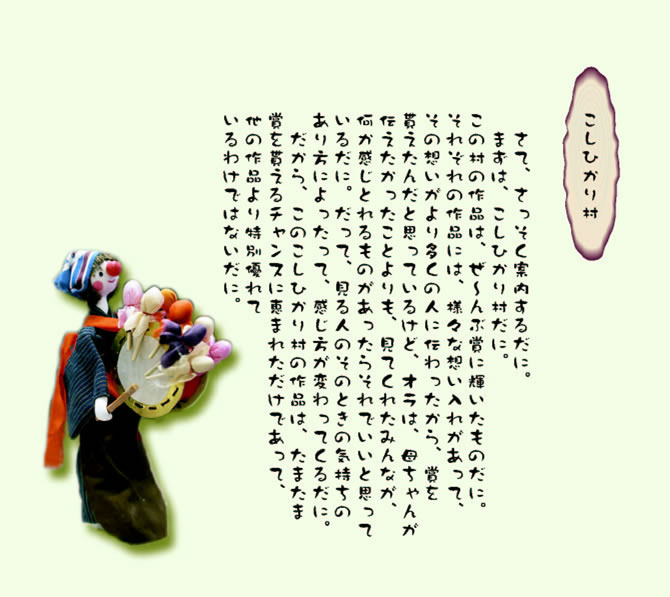 こしひかり村
さて、さっそく案内するだに。
まずは、こしひかり村だに。
この村の作品は、ぜ〜んぶ賞に輝いたものだに。
それぞれの作品には、様々な想い入れがあって、
その想いがより多くの人に伝わったから、賞を
貰えたんだと思っているけど、オラは、母ちゃんが
伝えたかったことよりも、見てくれたみんなが、
何か感じとれるものがあったらそれでいいと思って
いるだに。だって、見る人のそのときの気持ちの
あり方によったって、感じ方が変わってくるだに。
だから、このこしひかり村の作品は、たまたま
賞を貰えるチャンスに恵まれただけであって、
他の作品より特別優れて
いるわけではないだに。